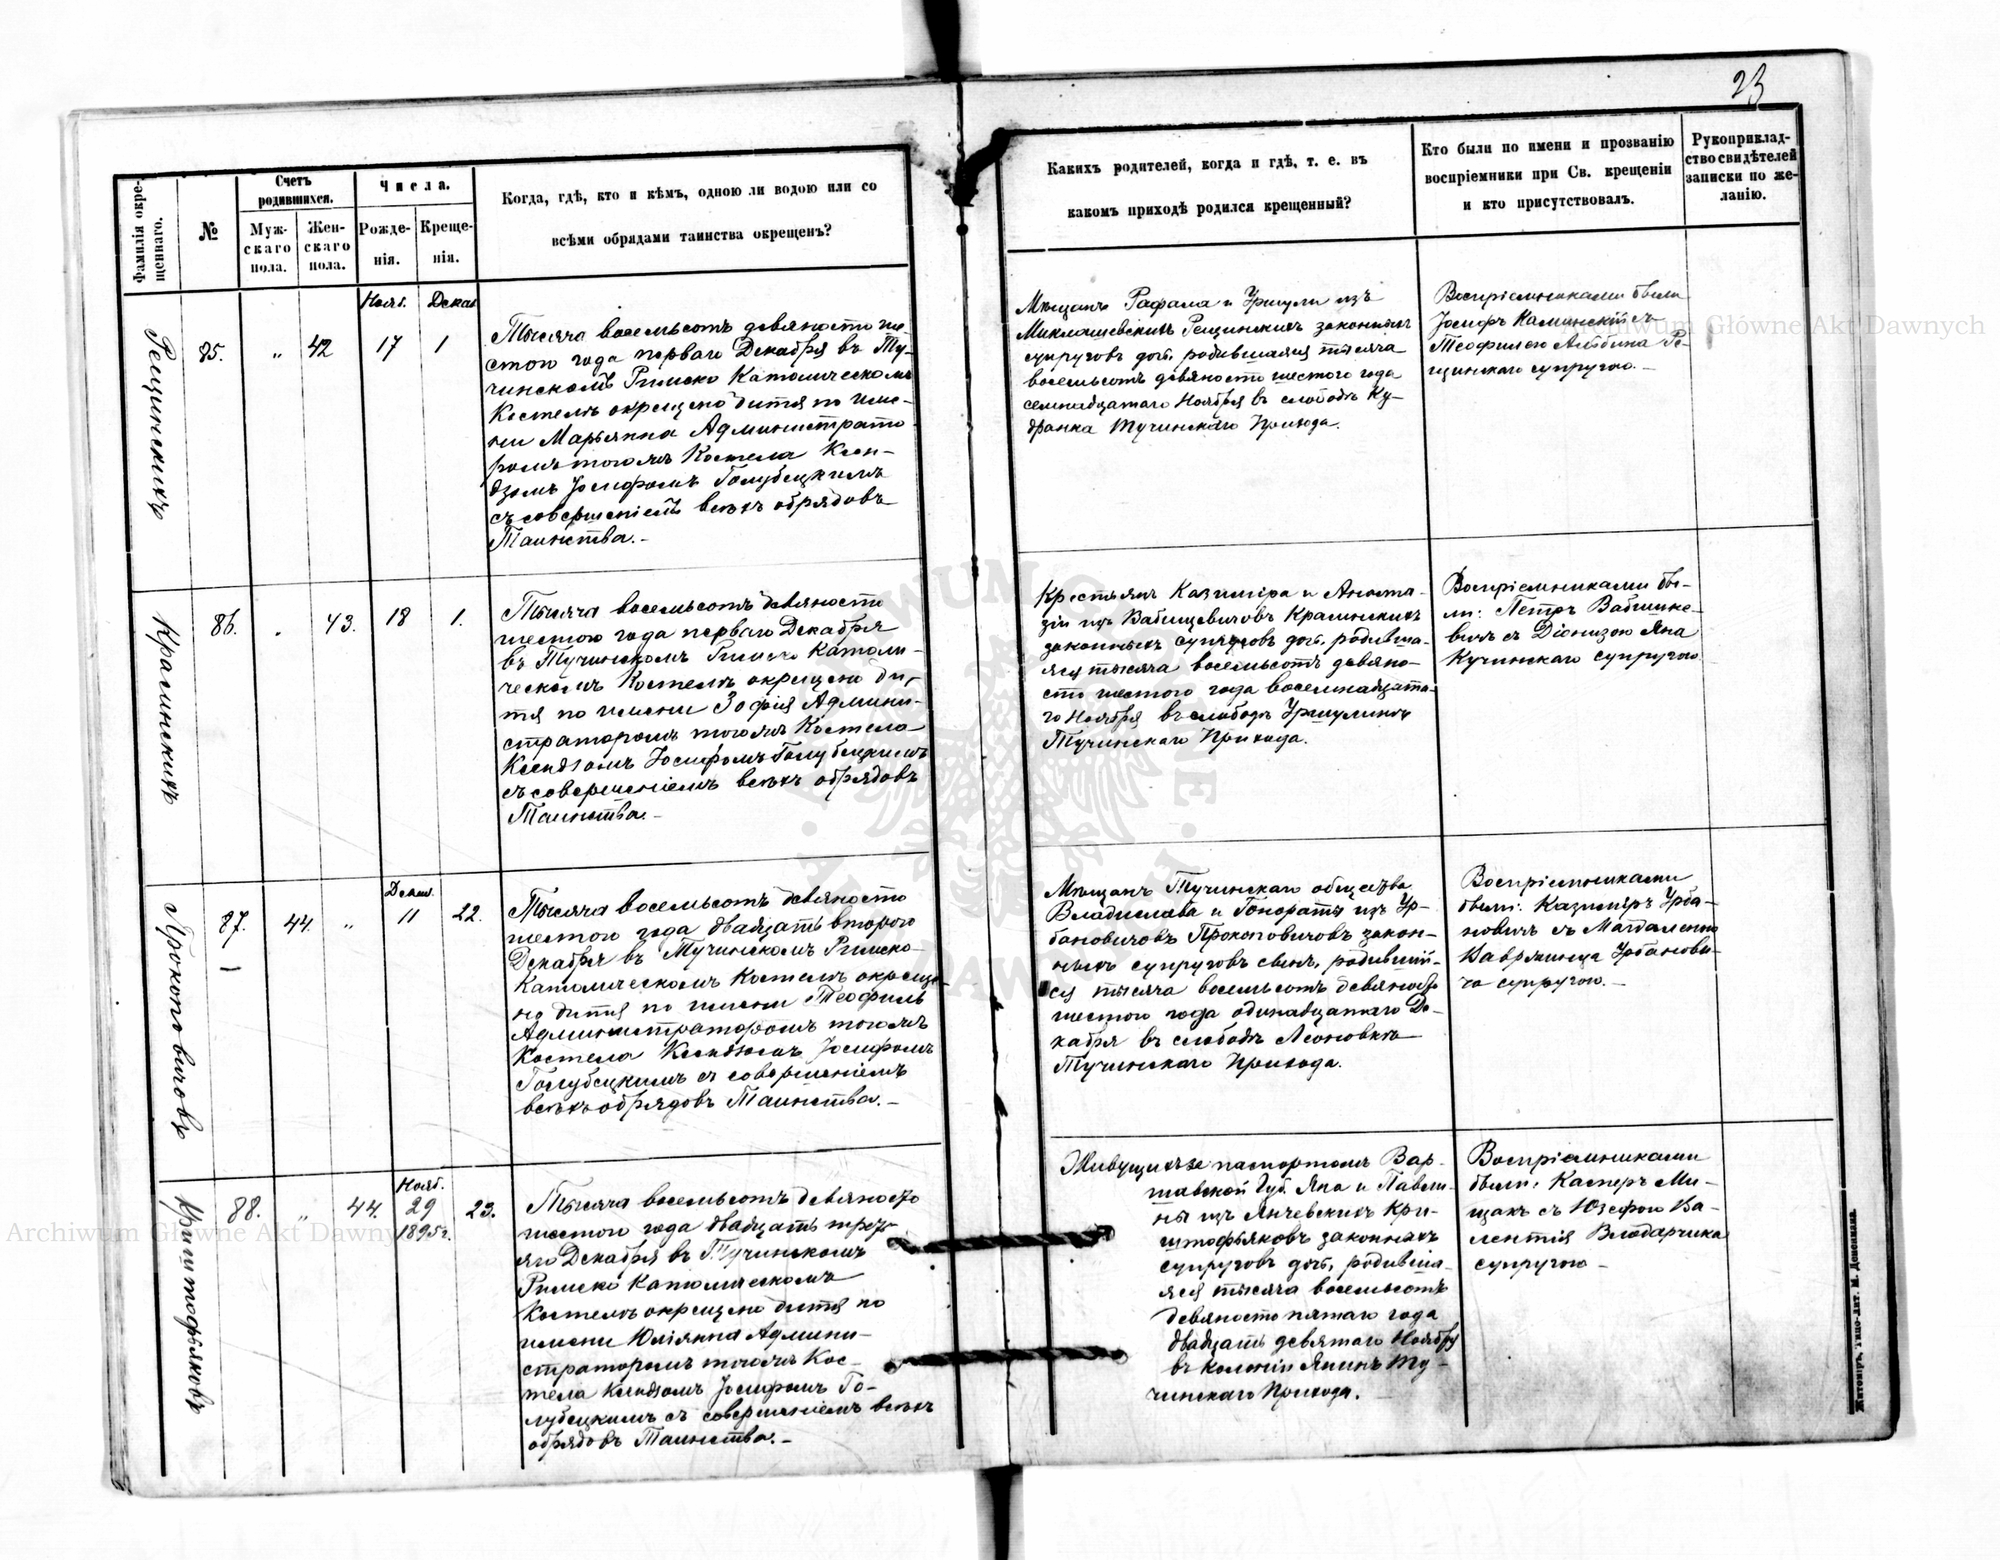 23
Фамилія окре-
щеннаго.
№
Счетъ
родившихся.
Муж-
скаго
пола.
Жен-
скаго
пола.
Числа.
Рожде-
нія.
Креще-
нія.
Когда, гдѣ, кто и кѣмъ, одною ли водою или со
всѣми обрядами таинства окрещенъ?
Какихъ родителей, когда и гдѣ, т. е. въ
какомъ приходѣ родился крещенный?
Кто были по имени и прозванію
воспріемники при Св. крещеніи
и кто присутствовалъ.
Рукоприклад-
ство свидѣтелей
записки по же-
ланію.
Рещинскихъ
85.
„
42
Нояб.
17
Декаб
1
Тысяча восемьсотъ девяносто ше-
стого года перваго Декабря въ Ту-
чинскомъ Римско Католическомъ
Костелѣ окрещено дитя по име-
ни Марьянна Администрато-
ромъ тогожъ Костела Ксен-
дзомъ Іосифомъ Голубецкимъ
съ совершеніемъ всѣхъ обрядовъ
Таинства.-
Мѣщанъ Рафала и Уршули изъ
Миклашевскихъ Рещинскихъ законныхъ
супруговъ дочь, родившаяся тысяча
восемьсотъ девяносто шестого года
семнадцатаго Ноября въ слободѣ Ку-
дранка Тучинскаго Прихода.
Воспріемниками были
Іосифъ Каминскій съ
Теофилею Альбина Ре-
щинскаго супругою.-
Крашинскихъ
86.
„
43.
18
1.
Тысяча восемьсотъ девяносто
шестого года перваго Декабря
въ Тучинскомъ Римско Католи-
ческомъ Костелѣ окрещено ди-
тя по имени Зофія Админи-
страторомъ тогожъ Костела
Ксендзомъ Іосифомъ Голубецкимъ
съ совершеніемъ всѣхъ обрядовъ
Таинства.-
Крестьянъ Казиміра и Анаста-
зіи изъ
законныхъ супруговъ дочь, родивша-
яся тысяча восемьсотъ девяно-
сто шестого года восемнадцата-
го Ноября въ слободѣ Уршулинкѣ
Тучинскаго Прихода.
Воспріемниками бы-
ли: Петръ
съ Діонизою Яна
Кучинскаго супругою
Прокоповичовъ
87.
44.
„
Декаб.
11
22.
Тысяча восемьсотъ девяносто
шестого года двадцать второго
Декабря въ Тучинскомъ Римско-
Католическомъ Костелѣ окреще-
но дитя по имени Теофиль
Администраторомъ тогожъ
Костела Ксендзомъ Іосифомъ
Голубецкимъ съ совершеніемъ
всѣхъ обрядовъ Таинства.-
Мѣщанъ Тучинскаго общества
Владислава и Гонораты изъ Ур-
бановичовъ Прокоповичовъ закон-
ныхъ супруговъ сынъ, родившій-
ся тысяча восемьсотъ девяносто
шестого года одинадцатаго Де-
кабря въ слободѣ Леоновкѣ
Тучинскаго Прихода.
Воспріемниками
были: Казиміръ Урба-
новичъ съ Магдаленою
Вавржинца Урбанови-
ча супругою.-
Криштофьяковъ
88.
„
44.
Нояб.
29
1895г.
23.
Тысяча восемьсотъ девяносто
шестого года двадцать треть-
яго Декабря въ Тучинскомъ
Римско Католическомъ
Костелѣ окрещено дитя по
имени Юліянна Админи-
страторомъ тогожъ Кос-
тела Ксендзомъ Іосифомъ Го-
лубецкимъ съ совершеніемъ всѣхъ
обрядовъ Таинства.-
Живущихъ за паспортомъ Вар-
шавской Губ. Яна и Павли-
ны изъ Янчевскихъ Кри-
штофьяковъ законныхъ
супруговъ дочь, родивша-
яся тысяча восемьсотъ
девяносто пятаго года
двадцать девятаго Ноября
въ колоніи Янинъ Ту-
чинскаго Прихода.
Воспріемниками
были: Касперъ Ми-
щакъ съ Юзефою Ва-
лентія Влодарчика
супругою-
Житоміръ, Типо-лит. М. Дененмана
Archiwum Główne Akt Dawnych
Archiwum Główne Akt Dawnych
ARCHIWUM GŁÓWNE AKT DAWNYCH